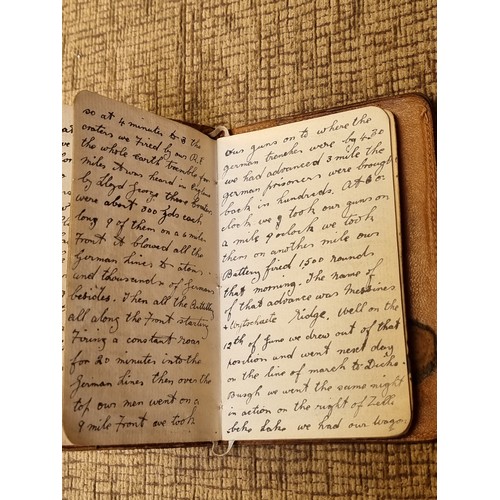 so at 4 minutes to 3 the
craters we fired by our R.E
the whole earth tremble for
miles it was heard in England
by Lloyd George these craters
were about 300 yds each
long 9 of them on a 6 mile
Front it blowed all the
German lines to atoms
and thousands of Germans
besides. Then all the Battery
all along the Front starting
Firing a constant roar
for 20 minutes into the
German lines then over the
top our men went on a
9 mile Front we took
our guns on to where the
german trenches were by 4-30
we had advanced 3 mile the
german prisoners were brough
back in hundreds. At 8 or
clock we took our guns on
a mile 9 oclock we took
them on another mile our
Battery fired 1500 rounds
that morning. The name of
of that advance was Messines
Ridge. Well on the
12th of June we drew out of that
position and went next day
on the line of march to Dicke-
Busgh we went the same night
in action on the right of Zille
beke Lake we had our wagon